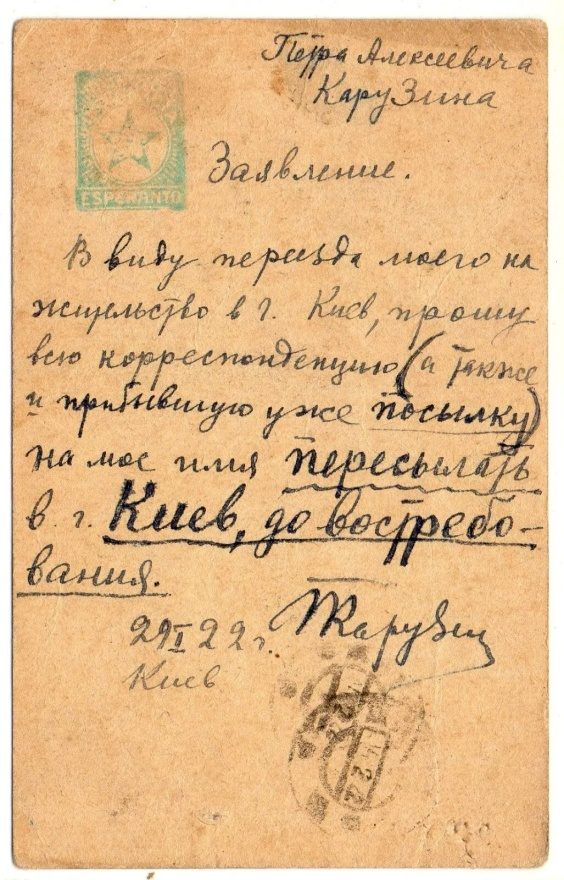 Петра Алексеевича
Карузина
ESPERANTO
Заявление.
В виду переезда моего на
жительство в г. Киев, прошу
всю корреспонденцию (а также
и прибывшую уже посылку)
на мое имя пересылать
в г. Киев, до востребо-
вания.
29 I 22 г. Карузин
Киев